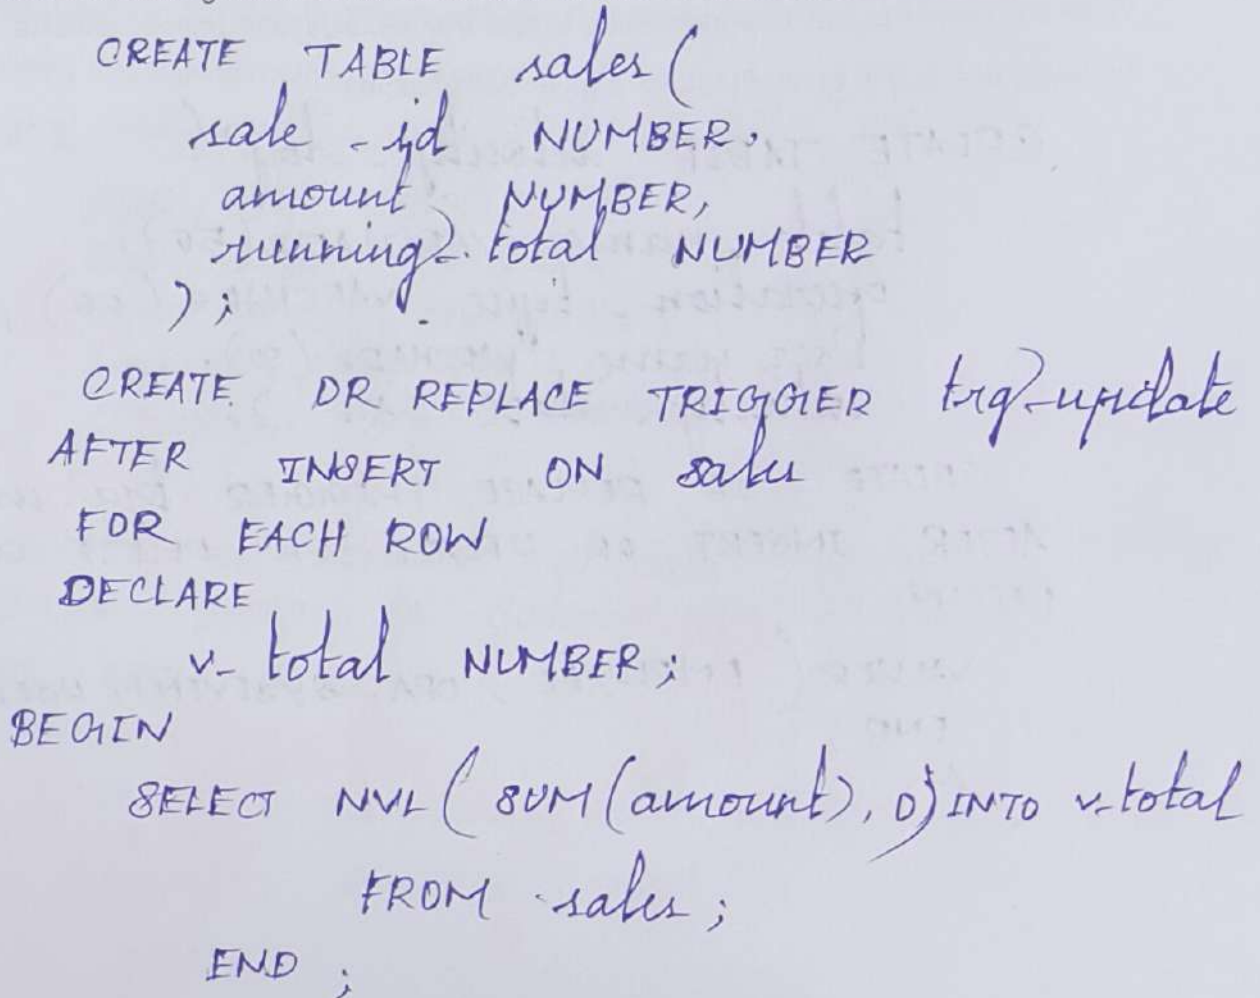 CREATE TABLE sales (
sale_id NUMBER,
amount NUMBER,
running_total NUMBER
);
CREATE OR REPLACE TRIGGER trg_update
AFTER INSERT ON sales
FOR EACH ROW
DECLARE
v_total NUMBER;
BEGIN
SELECT NVL(SUM(amount), 0) INTO v_total
FROM sales;
END;